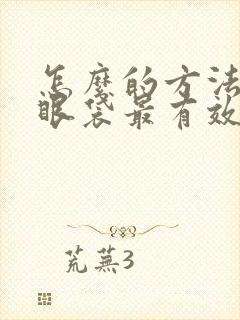 怎麽的方法
眼袋最有效
荒蕪3